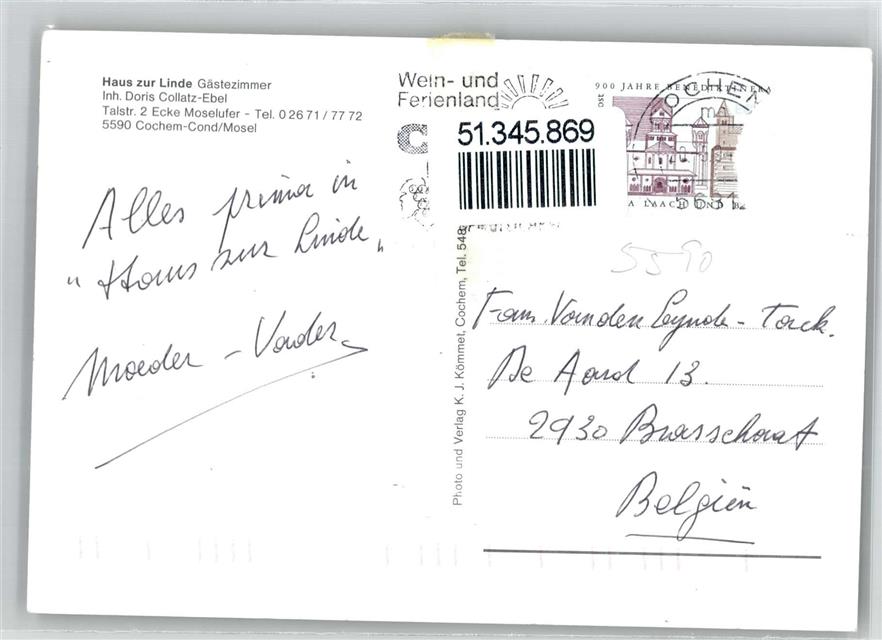 Haus zur Linde Gästezimmer
Inh. Doris Collatz-Ebel
Talstr. 2 Ecke Moselufer - Tel. 0 26 71 / 77 72
5590 Cochem-Cond/Mosel
Alles prima in
"Haus zur Linde"
Moeder - Vader
Wein- und
Ferienland
51.345.869
900 JAHRE BENEDIKTINER
OCHEM
5631
5590
Photo und Verlag K. J. Kömmet, Cochem, Tel. 548
Fam. Vanden Eynde - Tack.
De Aard 13.
2930 Brasschaat
Belgien